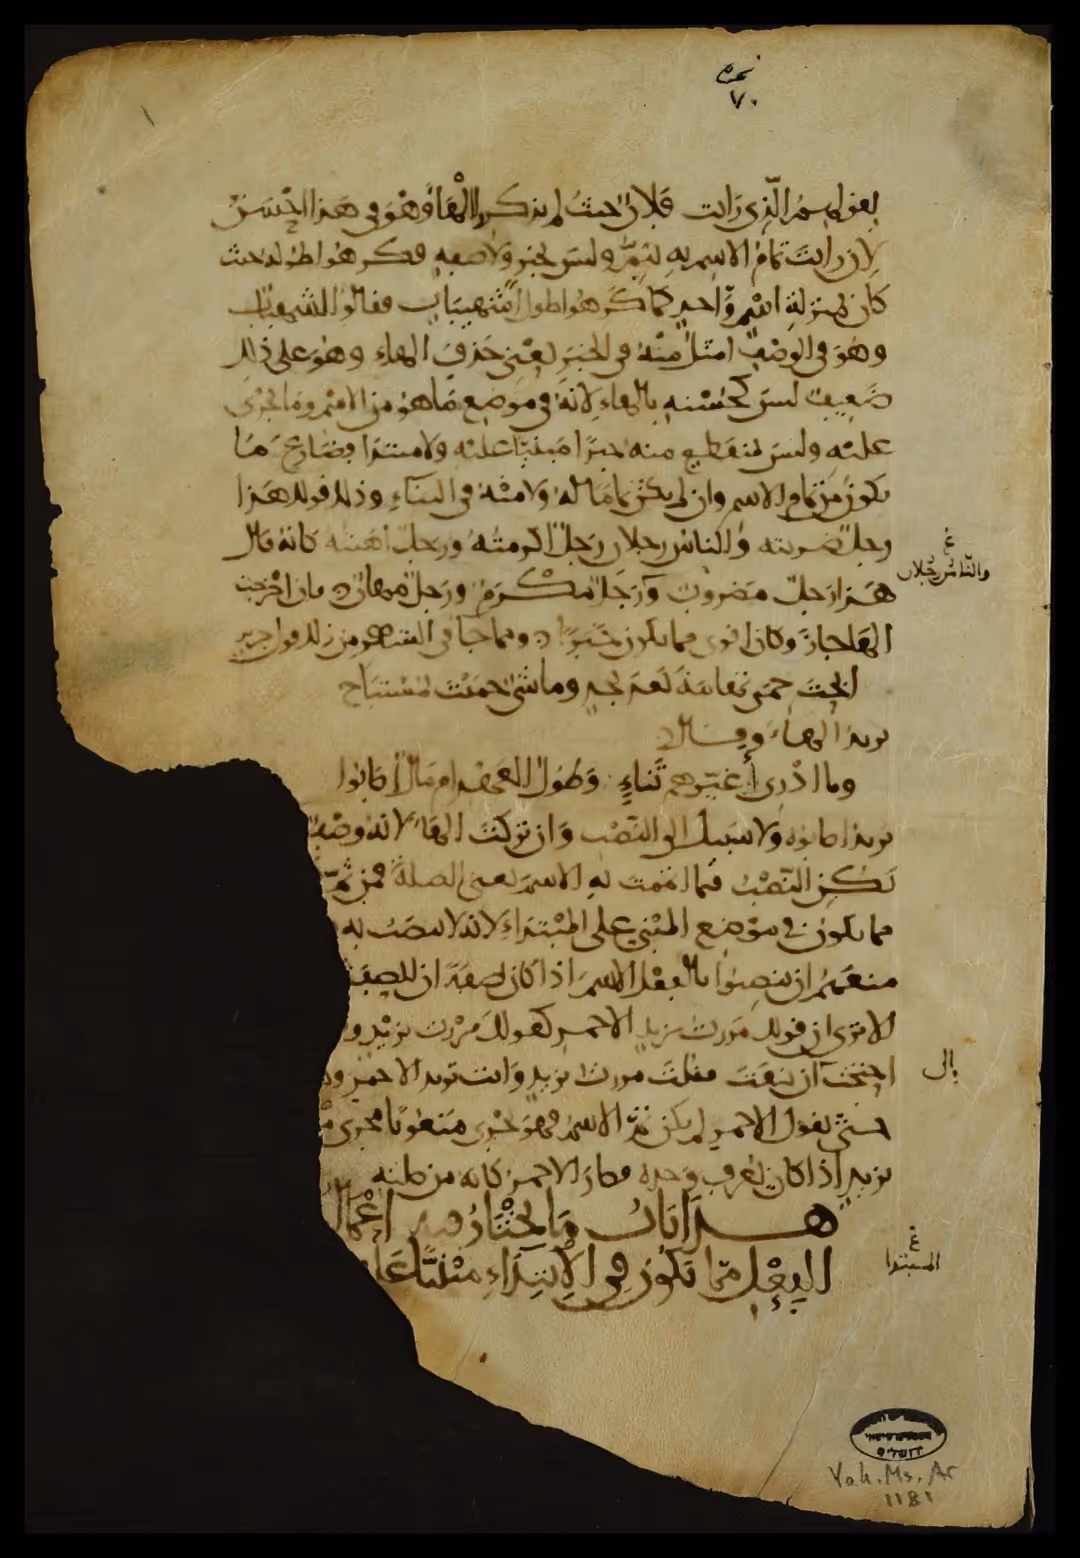 نمره
٧٠
يقول اسم الذي رايت فلان حيث لم يذكر الهاء وهو في هذا احسن
لان رايت تمام الاسم به يتم وليس بخبر ولا صفة فكرهوا طوله حيث
كان بمنزلة اسم واحد كما كرهوا طول اشهيباب فقالوا اشهباب
وهو في الوصف امثل منه في الخبر يعني حذف الهاء وهو على ذلك
ضعيف ليس كحسنه بالهاء لانه في موضع ما هو من الاسم وما يجرى
عليه وليس بمنقطع منه خبرا مبنيا عليه ولا مبتدا فضارع ما
يكون من تمام الاسم وان لم يكن تماما له ولا منه في البناء وذلك قولك هذا
رجل ضربته والناس رجلان رجل اكرمته ورجل اهنته كانه قال
غ
والناس رجلان
هذا رجل مضروب ورجل مكرم ورجل مهان فان اخرجت
الهاء جاز وكان اقوى مما يكون خبرا ومما جا في الشعر من ذلك قول جرير
ابحت حمى تهامة بعد نجد وما شئ حميت بمستباح
يريد الهاء وقال
وما ادرى أغيرهم تناء وطول العهد ام مال أصابوا
يريد اصابوه ولا سبيل الى النصب وان تركت الهاء لانه وصف
تكن النصب فيما اتممت به الاسم يعنى الصلة فمن ثم
مما يكون في موضع المبني على المبتداء لانه لا ينصب به
منعهم ان ينصبوا بالفعل الاسم اذا كان صفة ان الصفة
الا ترى ان قولك مررت بزيد الاحمر كقولك مررت بزيد و
احتجت ان تنعت فقلت مررت بزيد وانت تريد الاحمر و
الى
حتى تقول الاحمر لم يكن تم الاسم فهو يجرى منعوتا مجرى
بزيد اذا كان يعرف وحده فصار الاحمر كانه من صلته
هذا باب ما يختار فيه اعمال
الفعل مما يكون في الابتداء مبنيا عل
غ
المبتدا
Yah. Ms. Ar
1181